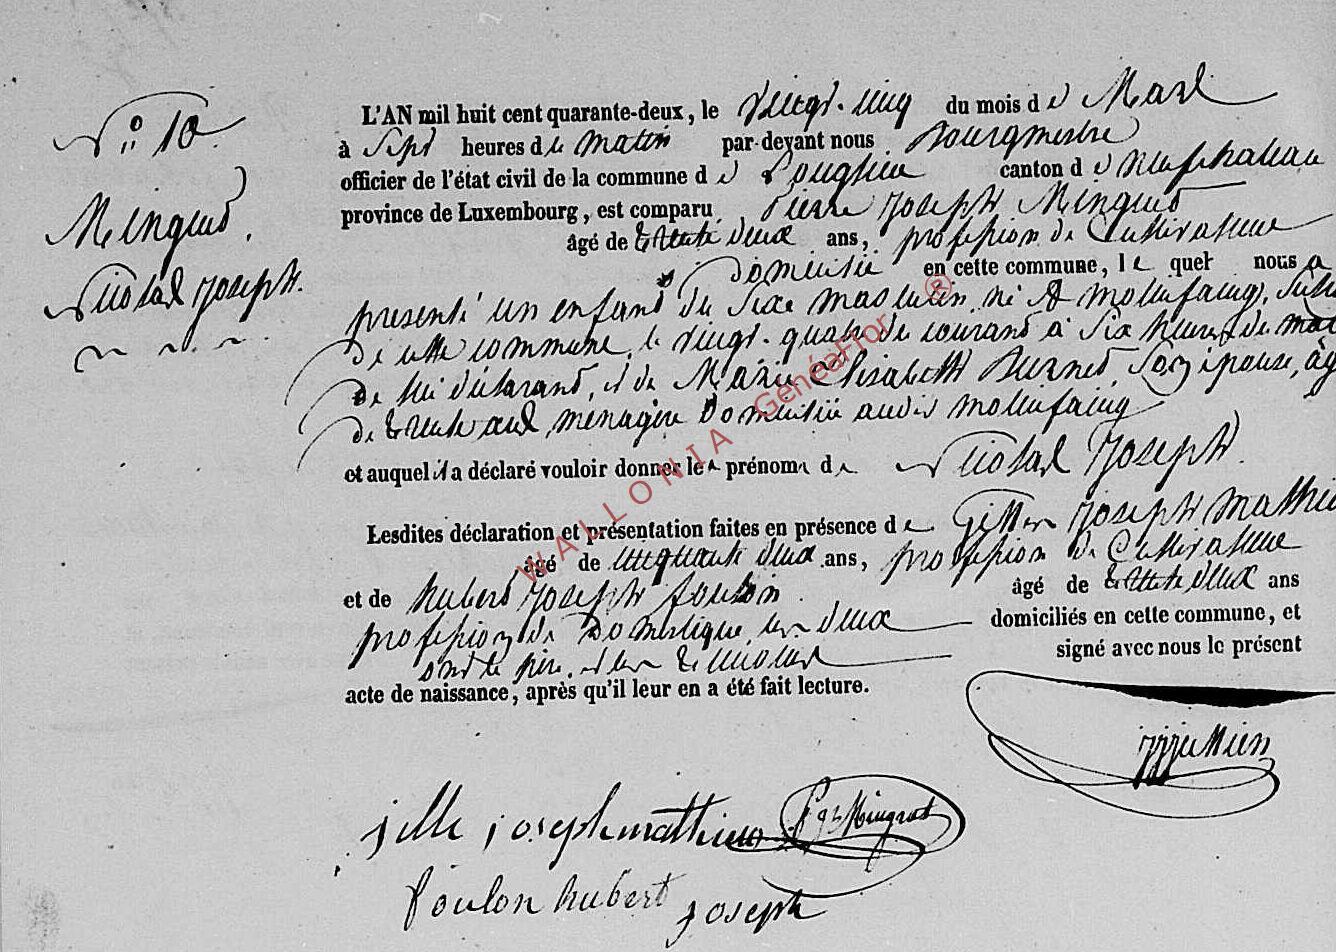 N° 10.
Minguet,
Nicolas Joseph.
L'AN mil huit cent quarante-deux, le vingt-cinq du mois de Mars
à Sept heures de matin par-devant nous Bourgmestre
officier de l'état civil de la commune de Longlier canton de Neufchateau
province de Luxembourg, est comparu Pierre Joseph Minguet
âgé de trente deux ans, profession de Cultivateur
Domicilié en cette commune, le quel nous a
presenté un enfant du sexe masculin né à mollifaing, section
de cette commune, le vingt-quatre du courant à six heures du matin
de lui déclarant, et de Marie Elisabeth Burnet, son épouse, âgée
de trente ans, menagère Domiciliée audit mollifaing
et auquel il a déclaré vouloir donner les prénoms de Nicolas Joseph.
Lesdites déclaration et présentation faites en présence de Joseph Mathieu
âgé de cinquante deux ans, profession de Cultivateur
et de hubert Joseph foulon âgé de trente deux ans
profession de Domestique, les deux domiciliés en cette commune, et
ont le père, et les témoins signé avec nous le présent
acte de naissance, après qu'il leur en a été fait lecture.
jille joseph mathieu P J Minguet
foulon hubert joseph
WALLONIA GenéaFlor ®